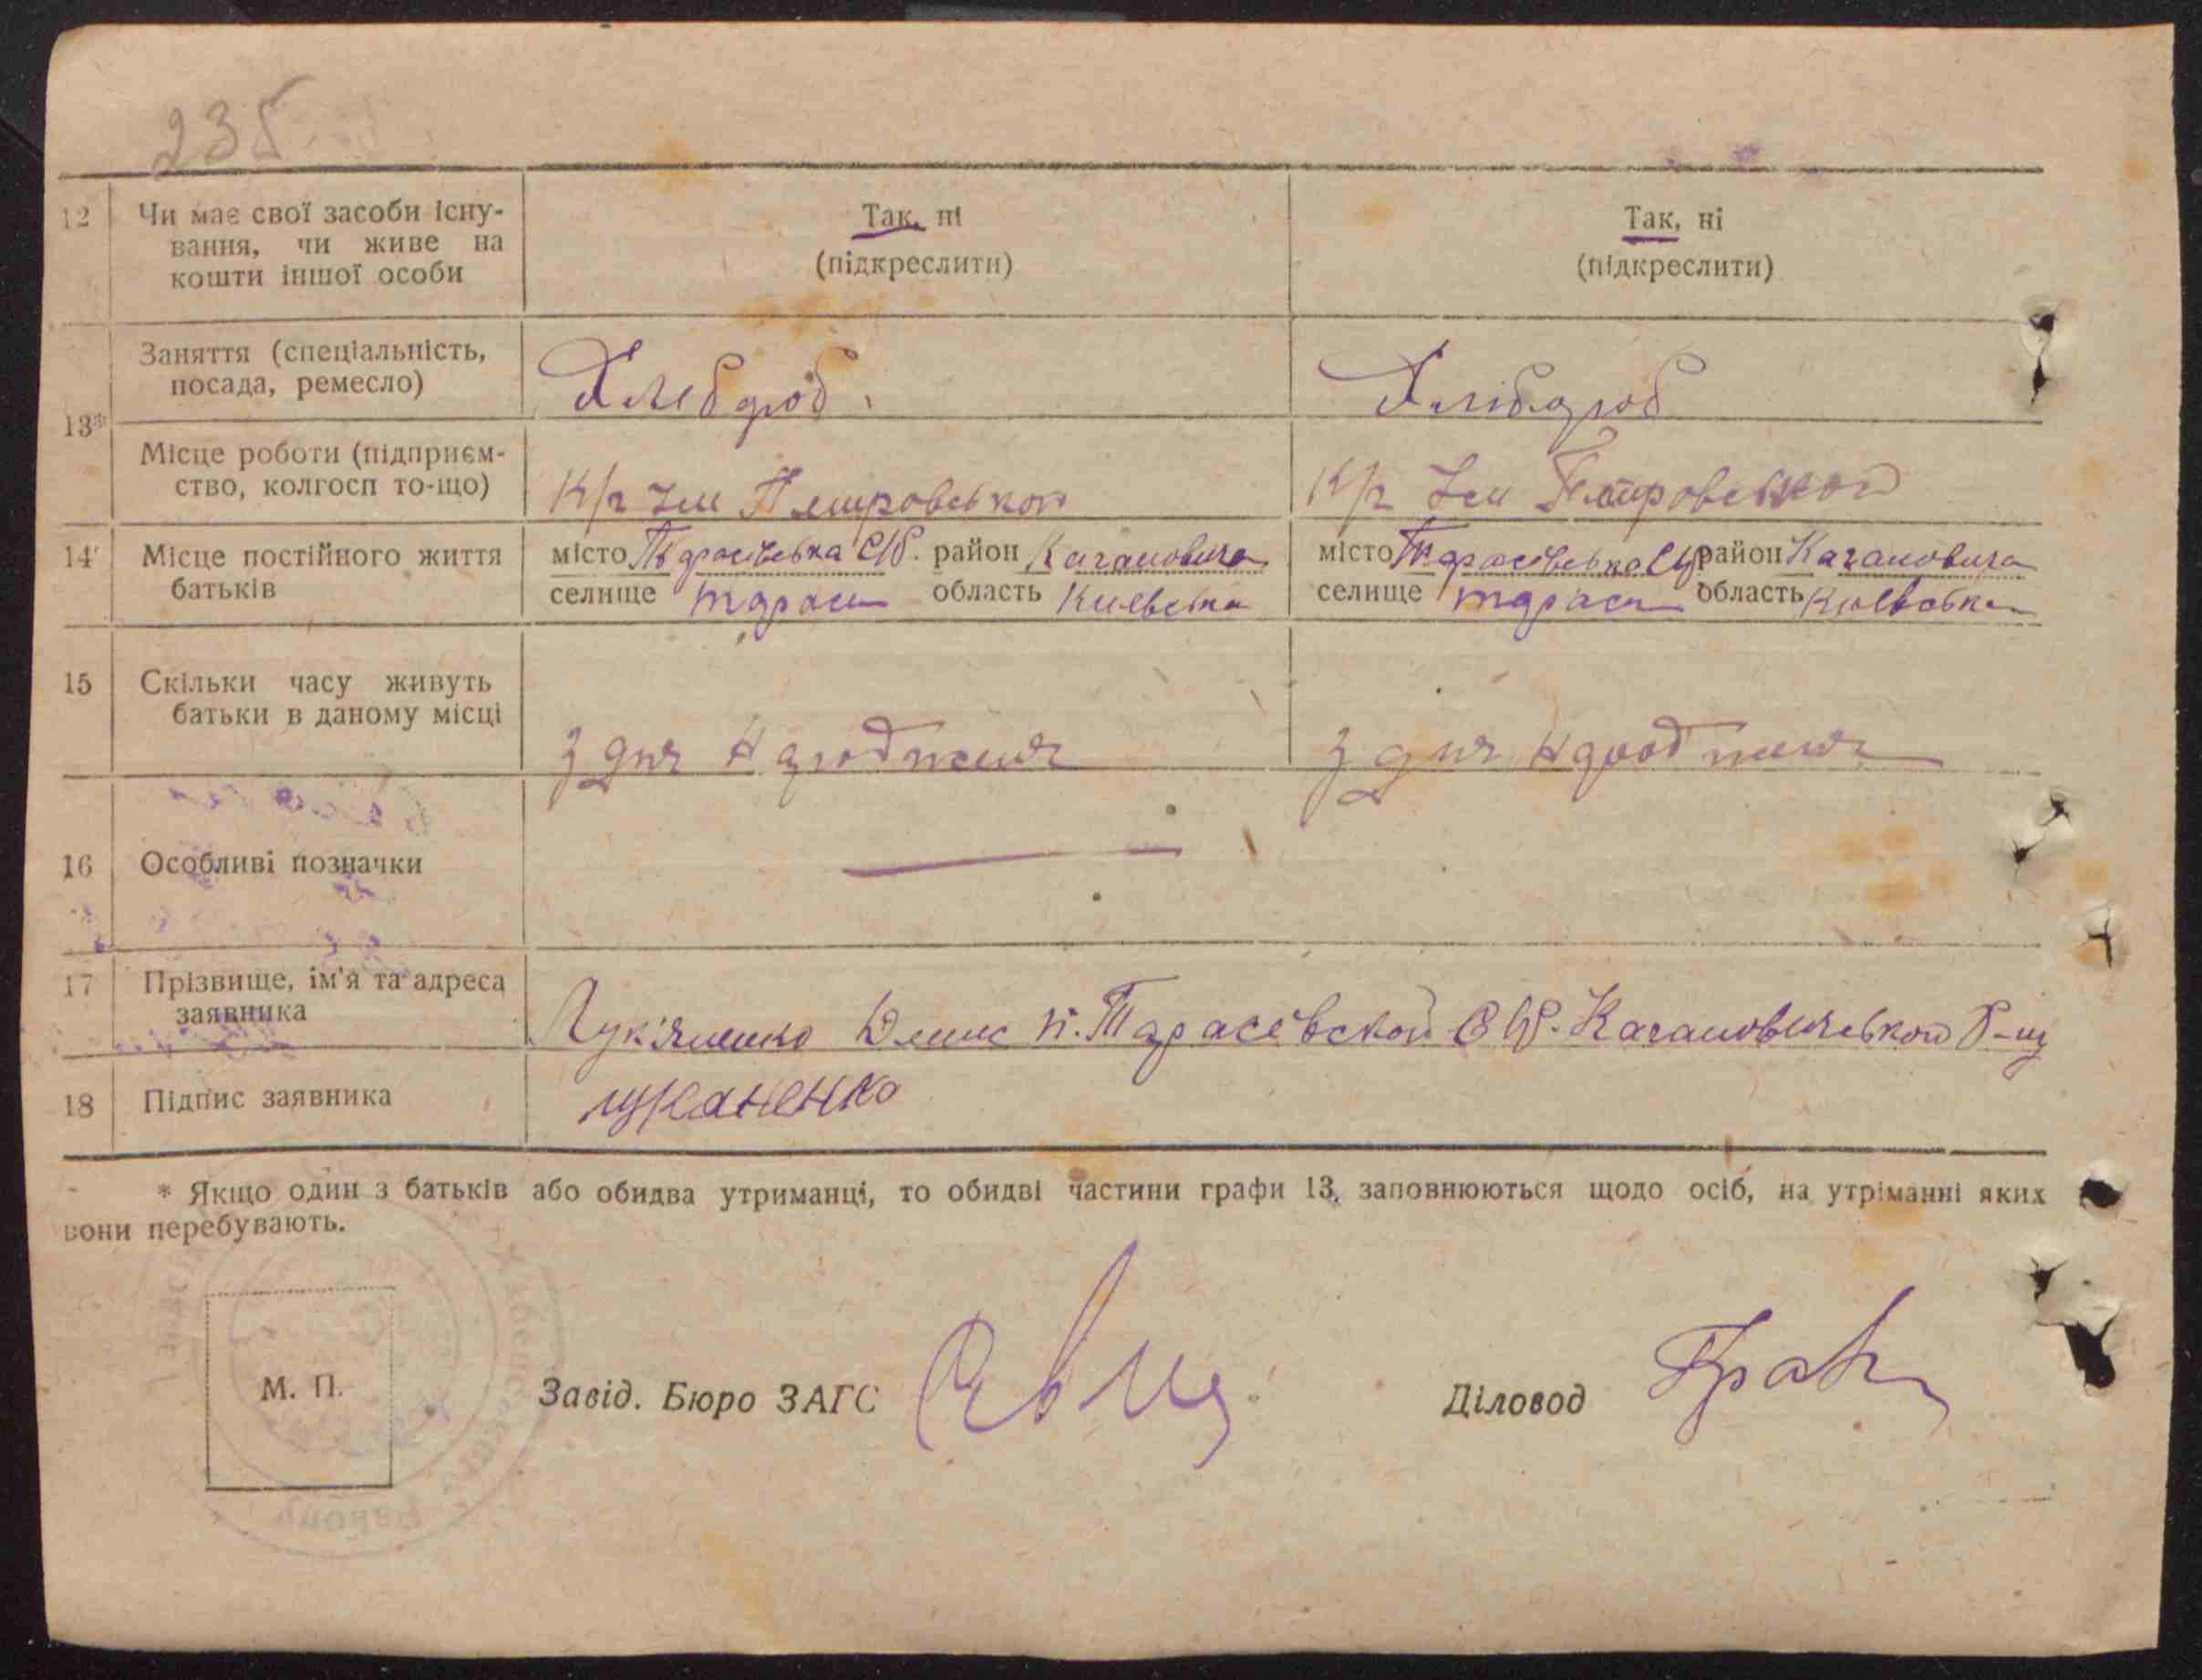 235
12 Чи має свої засоби існу- Так, ні Так, ні
вання, чи живе на (підкреслити) (підкреслити)
кошти іншої особи
Заняття (спеціальність,
посада, ремесло) Хлебороб. Хлібороб
13*
Місце роботи (підприєм-
ство, колгосп то-що) К/г Ім Петровського К/г Ім Петровського
14 Місце постійного життя місто Тарасівська С/р. район Кагановича місто Тарасівська С/р район Кагановича
батьків селище Тараси область Київська селище Тараси область Київська
15 Скільки часу живуть
батьки в даному місці з дня народження з дня народження
16 Особливі позначки —
17 Прізвище, ім'я та адреса
заявника Лук'яненко с. Тарасівской С/р. Кагановичського р-ну
18 Підпис заявника луканенко
* Якщо один з батьків або обидва утриманці, то обидві частини графи 13, заповнюються щодо осіб, на утріманні яких
вони перебувають.
М. П. Завід. Бюро ЗАГС Діловод
району